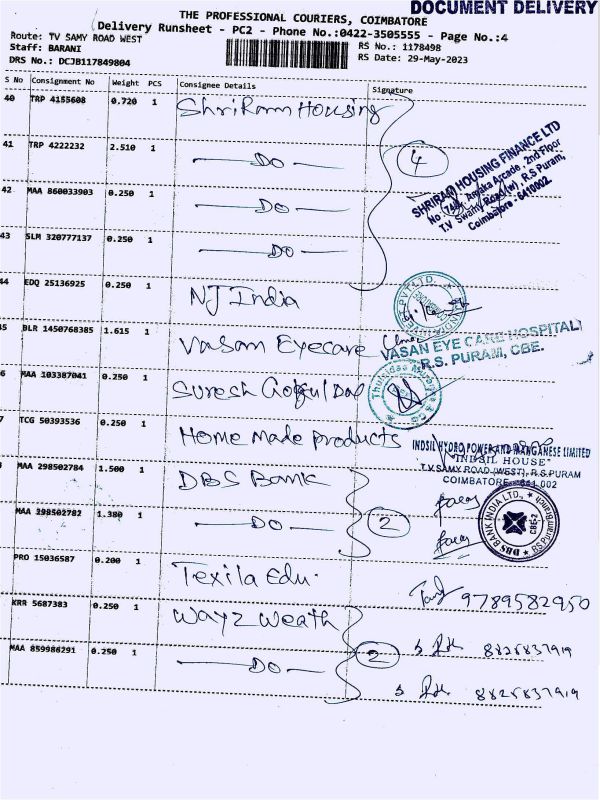 DOCUMENT DELIVERY
THE PROFESSIONAL COURIERS, COIMBATORE
Delivery Runsheet - PC2 - Phone No.:0422-3505555 - Page No.:4
Route: TV SAMY ROAD WEST
Staff: BARANI
DRS No.: DCJB117849804
RS No.: 1178498
RS Date: 29-May-2023
S No Consignment No Weight PCS Consignee Details Signature
40 TRP 4155608 0.720 1 ShriRam Housing
41 TRP 4222232 2.510 1 DO
4
SHRIRAM HOUSING FINANCE LTD
2nd Floor
T.V Swamy Road (w), R.S Puram,
Coimbatore - 641002.
42 MAA 860033903 0.250 1 DO
43 SLM 320777137 0.250 1 DO
44 EDQ 25136925 0.250 1 NJ India
5 BLR 1450768385 1.615 1 Vasan Eyecare
VASAN EYE CARE HOSPITAL
R.S. PURAM, CBE.
6 MAA 103387041 0.250 1 Suresh
7 TCG 50393536 0.250 1 Home made products
INDSIL HYDRO POWER AND MANGANESE LIMITED
"INDSIL HOUSE"
T.V.SAMY ROAD (WEST), R.S.PURAM
COIMBATORE - 641 002
MAA 298502784 1.500 1 DBS Bank
MAA 298502782 1.380 1 DO
2
DBS BANK INDIA LTD.,
CBE-2
PRO 15036587 0.200 1 Texila Edu.
9789582950
KRR 5687383 0.250 1 Wayz Weath
2
8825837919
MAA 859986291 0.250 1 DO
8825837919